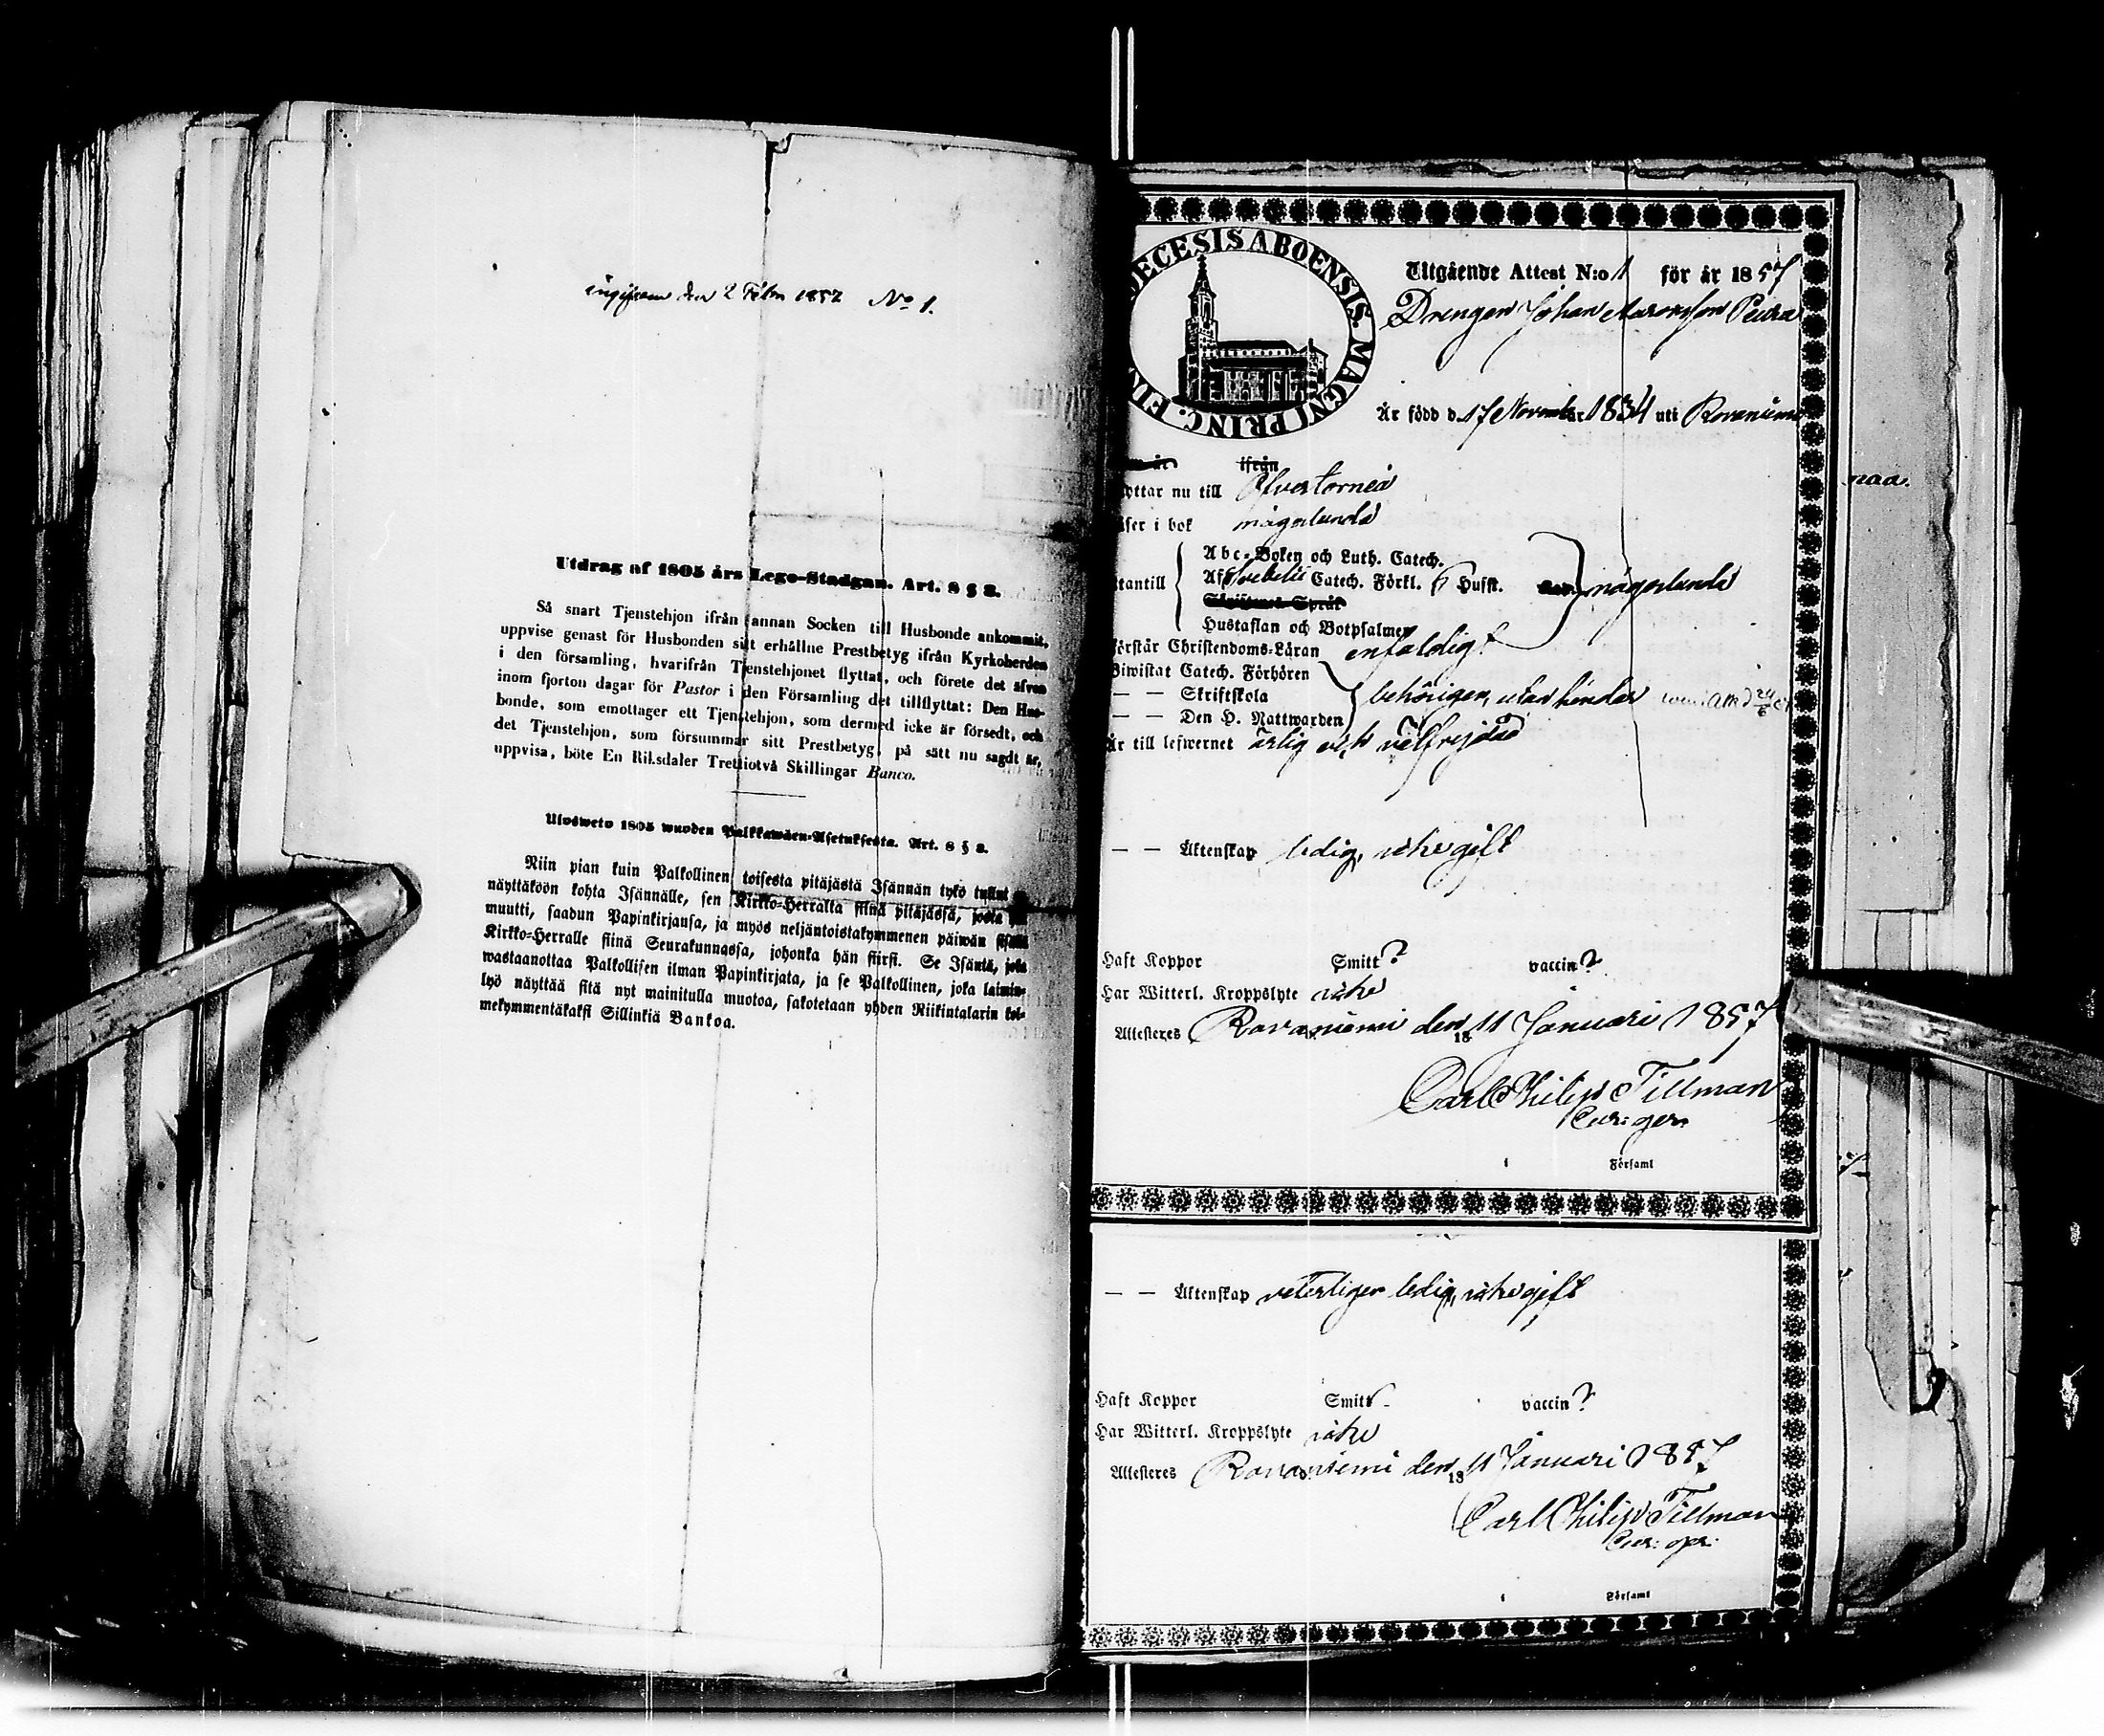 den 2 Febr 1857 No 1.
Utdrag af 1805 års Lego-Stadgan. Art. 8 § 8.
Så snart Tjenstehjon ifrån annan Socken till Husbonde ankommit,
uppvise genast för Husbonden sitt erhållne Prestbetyg ifrån Kyrkoherden
i den församling, hvarifrån Tjenstehjonet flyttat, och förete det äfven
inom fjorton dagar för Pastor i den Församling det tillflyttat: Den Hus-
bonde, som emottager ett Tjenstehjon, som dermed icke är försedt, och
det Tjenstehjon, som försummar sitt Prestbetyg, på sätt nu sagdt är,
uppvisa, böte En Riksdaler Trettiotvå Skillingar Banco.
Ulosweto 1805 wuoden Palkkawäen-Asetuksesta. Art. 8 § 8.
Niin pian kuin Palkollinen toisesta pitäjästä Isännän tykö tullut
näyttäköön kohta Isännälle, sen Kirkko-Herralta siinä pitäjässä, josta
muutti, saadun Papinkirjansa, ja myös neljäntoistakymmenen päiwän sisällä
Kirkko-Herralle siinä Seurakunnassa, johonka hän siirsi. Se Isäntä, joka
wastaanottaa Palkollisen ilman Papinkirjata, ja se Palkollinen, joka laimin-
lyö näyttää sitä nyt mainitulla muotoa, sakotetaan yhden Riikintalarin kol-
mekymmentäkaksi Sillinkiä Bankoa.
ECESIS ABOENSIS. MAGNI PRINC. FIN
Utgående Attest N:o 1 för år 1857
Drengen Johan Aaronsson Peura
Är född d. 17 November 1834 uti Rovaniemi
ifrån
yttar nu till Öfvertorneå
äser i bok någorlunda
Abc-Boken och Luth. Catech.
utantill Af Svebelii Catech. Förkl. Husft. någorlunda
Språk
Hustaflan och Botpsalmer
Förstår Christendoms-Läran enfaldigt
Biwistat Catech. Förhören
— — Skriftskola behörigen,
— — Den H. Nattwarden
Är till lefwernet ärlig och välfrejdad
— — Äktenskap ledig, icke gift
Haft Koppor Smitt? vaccin?
Har Witterl. Kroppslyte icke
Attesteres Rovaniemi den 11 Januari 1857
18
Carl Philip Tillman
i Församl
naa.
— — Äktenskap veterligen ledig, icke gift
Haft Koppor Smitt vaccin?
Har Witterl. Kroppslyte icke
Attesteres Rovaniemi den 11 Januari 1857
18
Carl Philip Tillman
i Församl